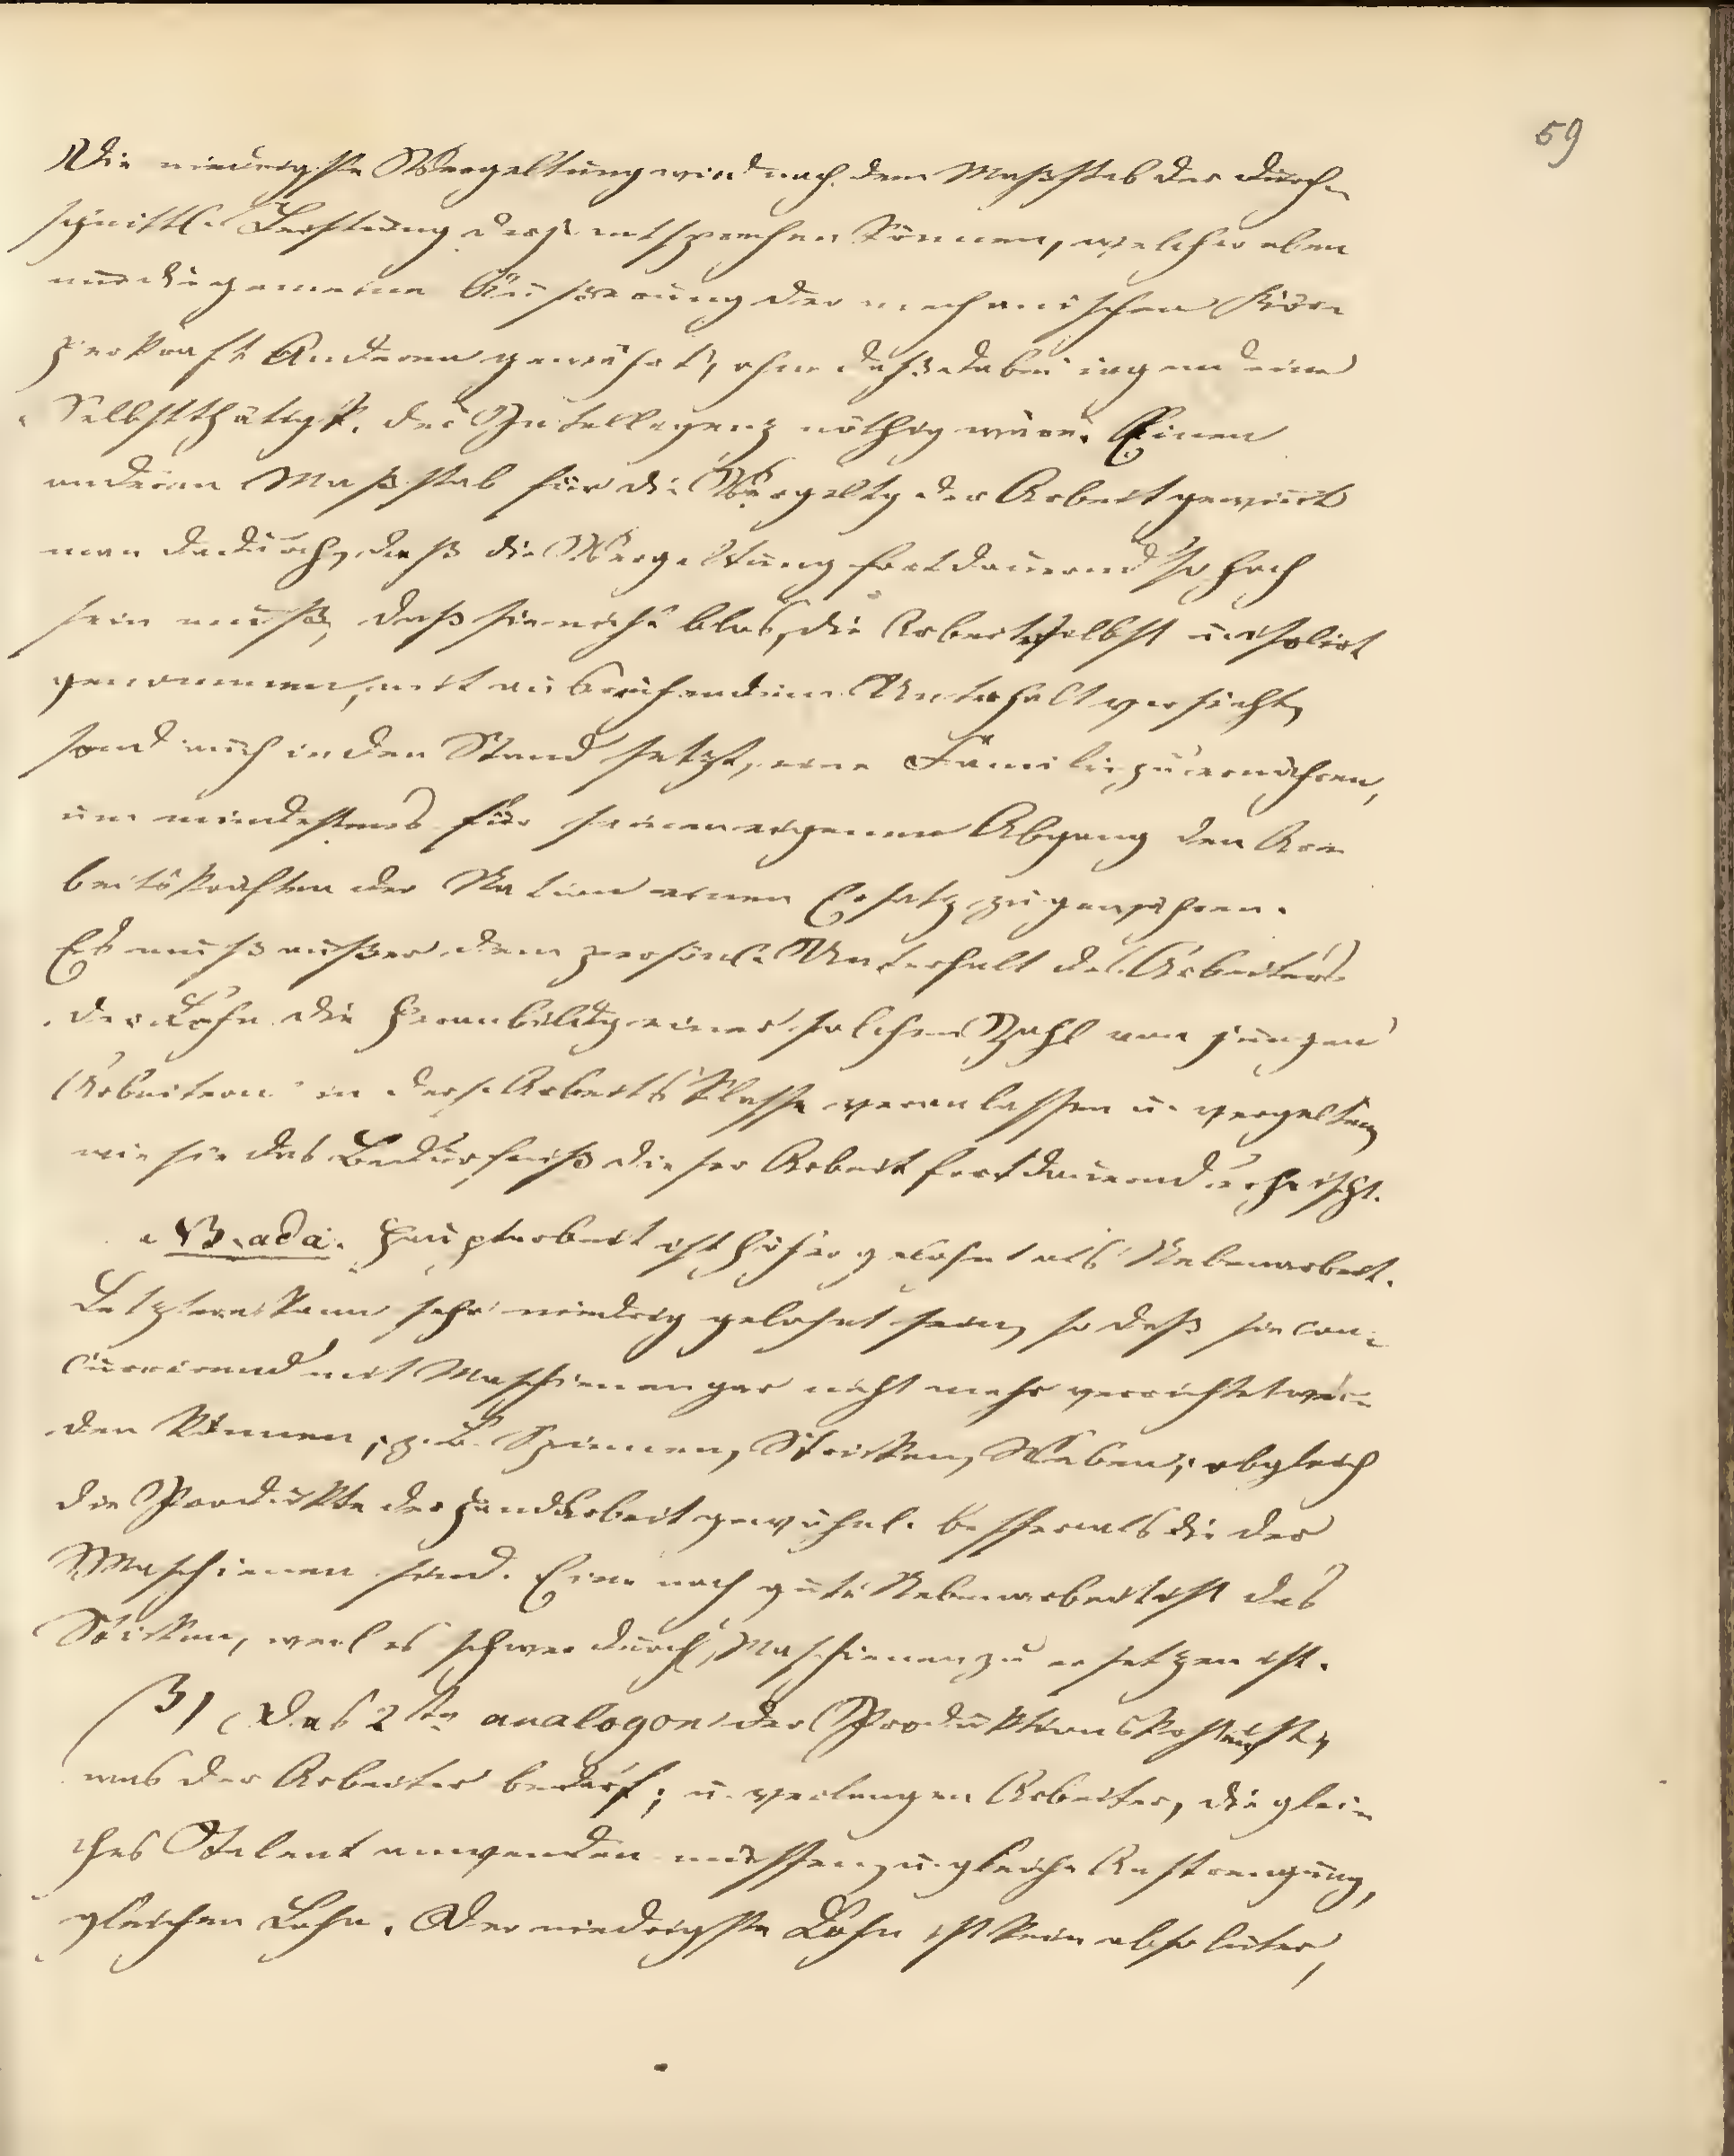 59
Die niedrigste Vergeltung wird nach dem Maßstab der durch-
schnittl. Leistung derj. entsprechen können, welcher eben
nur die gemeine Äusserung der mechanischen Kör-
perkraft Anderen gewährt, ohne daß dabei irgend eine
Selbstthätigk. der Intellegenz nöthig wäre. Einen
anderen Maßstab für die Vergeltg der Arbeit gewinnt
man dadurch, daß die Vergeltung fortdauernd so hoch
sein muß, daß sie nicht blos, die Arbeiter selbst isolirt
genommen, mit ausreichendem Unterhalt versieht,
sond auch in den Stand setzt, eine Familie zu ernähren,
um mindestens für seinen eigenen Abgang den Ar-
beitskräften der Nation einen Ersatz zu gewähren.
Es muß außer dem persönl. Unterhalt des Arbeiters
der Lohn die Heranbildg einer solchen Zahl von jungen
Arbeitern in ders. Arbeits Klasse veranlassen u. vergelten,
wie sie das Bedürfniß dieser Arbeit fortdauernd erheischt.
Hauptarbeit ist höher gelohnt als Nebenarbeit.
Letztere kann sehr niedrig gelohnt sein, so daß sie con-
currirend mit Maschienen gar nicht mehr verrichtet wer-
den können, z.B. Spinnen, Stricken, Weben; obgleich
die Produkte der Handarbeit gewöhnl. besser als die der
Maschienen sind. Eine noch gute Nebenarbeit ist das
Sticken, weil es schwer durch Maschienen zu ersetzen ist.
β) Das 2te analogon der Produktionskosten ist,
was der Arbeiter bedarf; u. verlangen Arbeiter, die glei-
ches Talent anwenden müssen, u. gleiche Anstrengung,
gleichen Lohn. Der niedrigste Lohn ist kein absoluter,